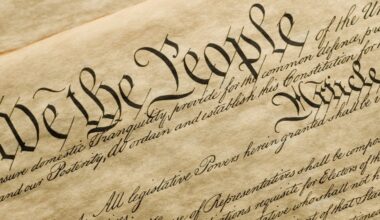 We the People of the Un
sure domestic Tranquility, provide for the common defence, pro
and our Posterity, do ordain and establish this Constitution for
Article
All legislative Powers herein granted shall be v
of Representatives shall be compo
ations requisite for Electors of the
who shall not ha